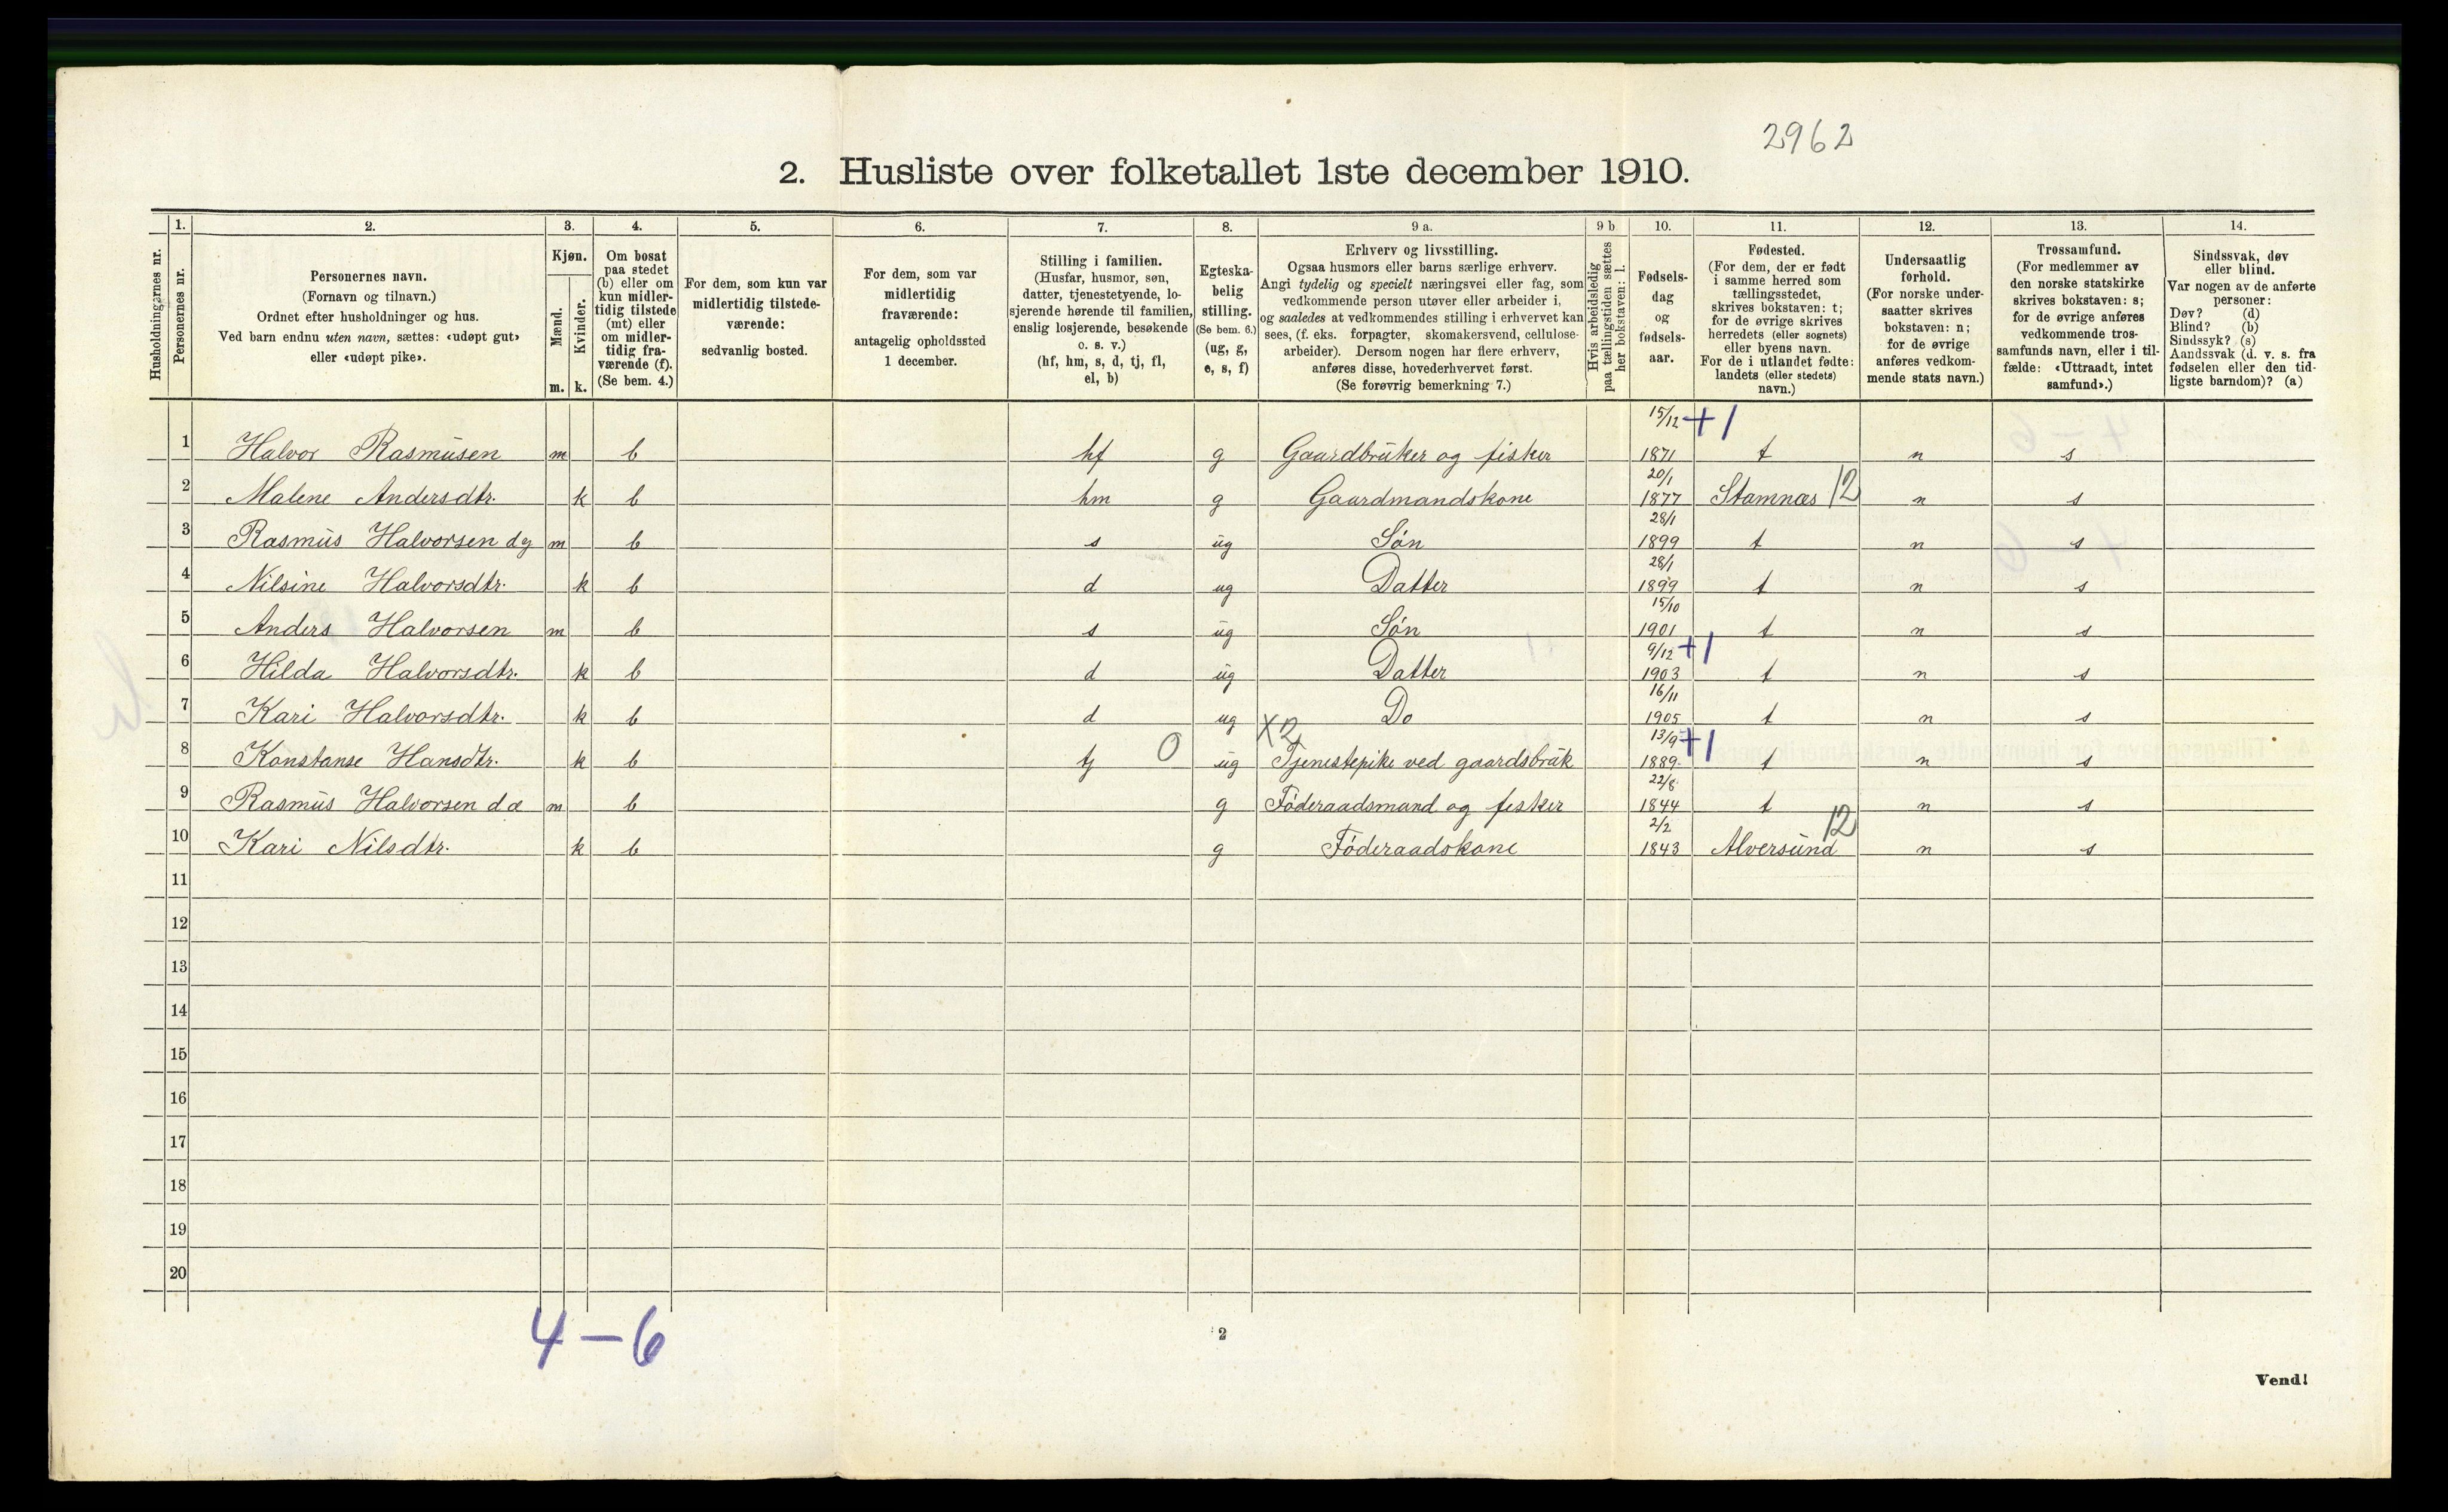 2962
2. Husliste over folketallet 1ste december 1910.
Husholdningernes nr.
1. Personernes nr.
2. Personernes navn.
(Fornavn og tilnavn.)
Ordnet efter husholdninger og hus.
Ved barn endnu uten navn, sættes: «udøpt gut»
eller «udøpt pike».
3. Kjøn.
Mænd. m.
Kvinder. k.
4. Om bosat
paa stedet
(b) eller om
kun midler-
tidig tilstede
(mt) eller
om midler-
tidig fra-
værende (f).
(Se bem. 4.)
5. For dem, som kun var
midlertidig tilstede-
værende:
sedvanlig bosted.
6. For dem, som var
midlertidig
fraværende:
antagelig opholdssted
1 december.
7. Stilling i familien.
(Husfar, husmor, søn,
datter, tjenestetyende, lo-
sjerende hørende til familien,
enslig losjerende, besøkende
o. s. v.)
(hf, hm, s, d, tj, fl,
el, b)
8. Egteska-
belig
stilling.
(Se bem. 6.)
(ug, g,
e, s, f)
9 a. Erhverv og livsstilling.
Ogsaa husmors eller barns særlige erhverv.
Angi tydelig og specielt næringsvei eller fag, som
vedkommende person utøver eller arbeider i,
og saaledes at vedkommendes stilling i erhvervet kan
sees, (f. eks. forpagter, skomakersvend, cellulose-
arbeider). Dersom nogen har flere erhverv,
anføres disse, hovederhvervet først.
(Se forøvrig bemerkning 7.)
9 b Hvis arbeidsledig
paa tællingstiden sættes
her bokstaven: l.
10. Fødsels-
dag
og
fødsels-
aar.
11. Fødested.
(For dem, der er født
i samme herred som
tællingsstedet,
skrives bokstaven: t;
for de øvrige skrives
herredets (eller sognets)
eller byens navn.
For de i utlandet fødte:
landets (eller stedets)
navn.)
12. Undersaatlig
forhold.
(For norske under-
saatter skrives
bokstaven: n;
for de øvrige
anføres vedkom-
mende stats navn.)
13. Trossamfund.
(For medlemmer av
den norske statskirke
skrives bokstaven: s;
for de øvrige anføres
vedkommende tros-
samfunds navn, eller i til-
fælde: «Uttraadt, intet
samfund».)
14. Sindssvak, døv
eller blind.
Var nogen av de anførte
personer:
Døv? (d)
Blind? (b)
Sindssyk? (s)
Aandssvak (d. v. s. fra
fødselen eller den tid-
ligste barndom)? (a)
1 Halvor Rasmusen m b hf g Gaardbruker og fisker 15/12 +1 1871 t n s
2 Malene Andersdtr. k b hm g Gaardmandskone 20/1 1877 Stamnæs 12 n s
3 Rasmus Halvorsen dy m b s ug Søn 28/1 1899 t n s
4 Nilsine Halvorsdtr. k b d ug Datter 28/1 1899 t n s
5 Anders Halvorsen m b s ug Søn 15/10 1901 t n s
6 Hilda Halvorsdtr. k b d ug Datter 9/12 +1 1903 t n s
7 Kari Halvorsdtr. k b d ug Do 16/11 1905 t n s
8 Konstanse Hansdtr. k b tj 0 ug X2 Tjenestepike ved gaardsbruk 13/9 +1 1889 t n s
9 Rasmus Halvorsen d æ m b g Føderaadsmand og fisker 22/8 1844 t n s
10 Kari Nilsdtr. k b g Føderaadskone 2/2 1843 Alversund 12 n s
11
12
13
14
15
16
17
18
19
20
4 – 6
2
Vend!